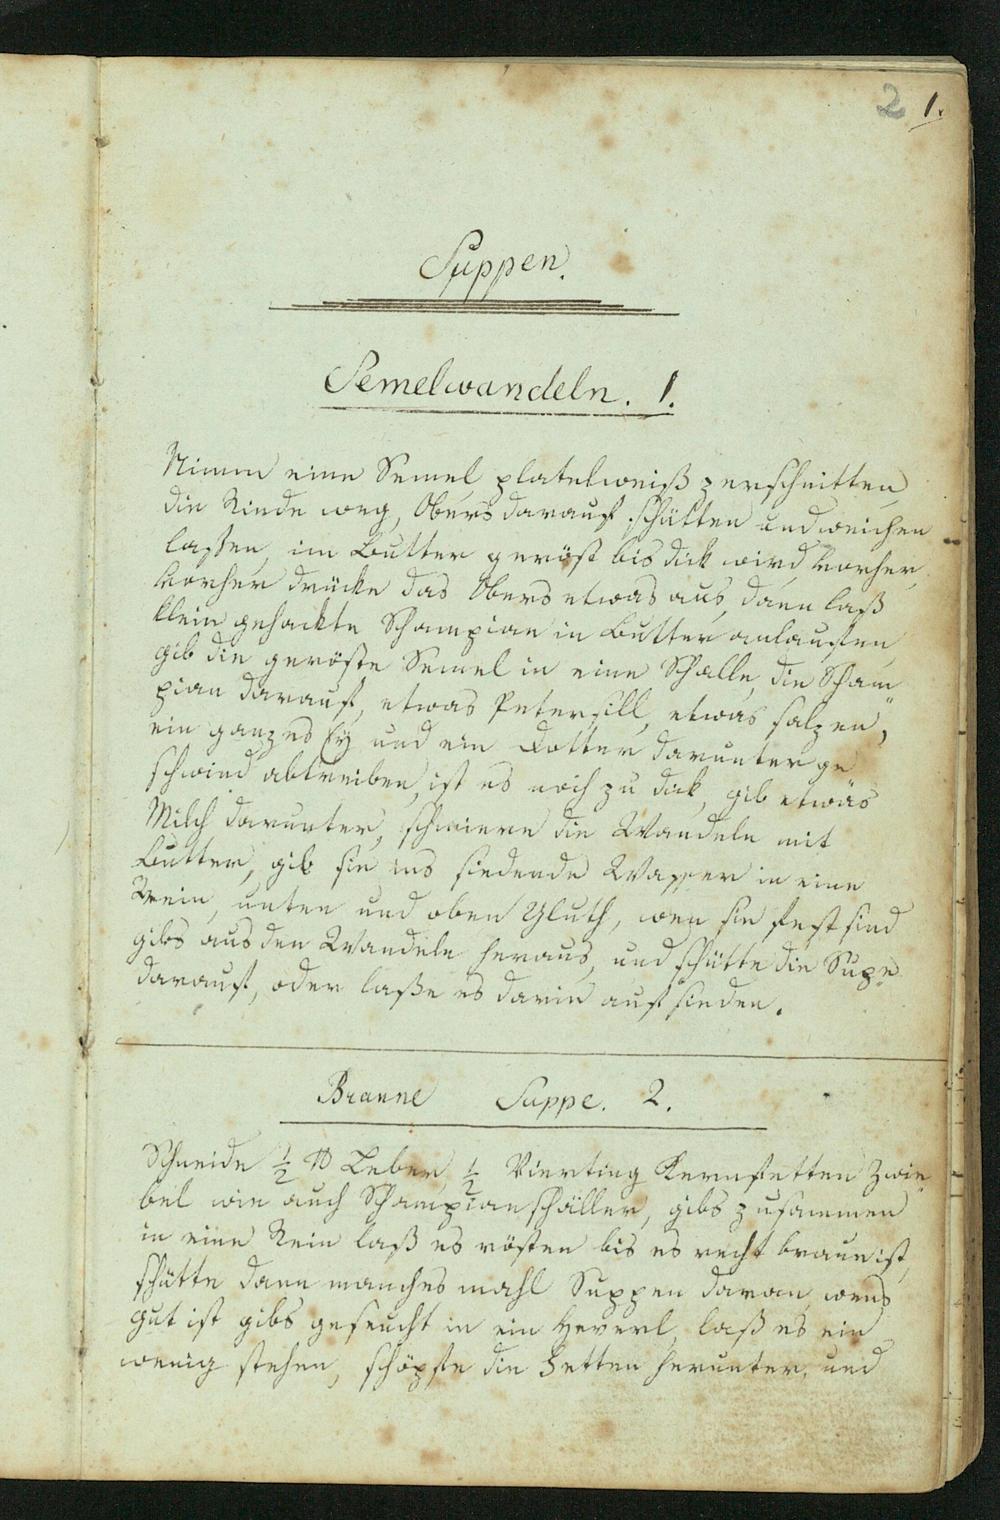 2 1.
Suppen.
Semelwandeln. 1.
Nimm eine Semel platelweiß zerschnitten
die Rinde weg, Obers darauf schütten und weichen
lassen, im Butter geröst bis dick wird vorher,
vorher drücke das Obers etwas aus, dann laß
klein gehackte Schampian in Butter anlaufen
gib die geröste Semel in eine Schalle, die Scham
pian darauf, etwas Petersill, etwas salzen,
ein ganzes Ey und ein Dotter darunter ge
schwind abtreiben, ist es noch zu dick, gib etwas
Milch darunter, schmiere die Wandeln mit
Butter, gib sie ins siedende Wasser in eine
Rein, unten und oben Gluth, wen sie fest sind
gibs aus den Wandeln heraus, und schütte die Supe
darauf, oder laße es darin auf sieden.
Braune Suppe. 2.
Schneide ½ ℔ Leber, ½ Vierting Kernfetten Zwie
bel wie auch Schampianschäller, gibs zusammen
in eine Rein laß es rösten bis es recht braun ist,
schütte dann manches mahl Suppen daran, wens
gut ist gibs geseucht in ein Heverl, laß es ein
wenig stehen, schöpfe die Fetten herunter, und